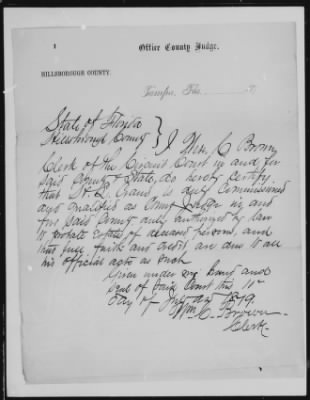 Office County Judge.
HILLSBOROUGH COUNTY.
Tampa, Fla. 187
State of Florida
Hillsborough County } I Wm. C. Brown
Clerk of the Circuit Court in and for
said County & State, do hereby certify
that H. L. Crane, is duly Commissioned
and qualified as County Judge in and
for said County and authorized by law
to probate Estates of deceased persons, and
that full faith and credit are due to all
his official acts as such
Given under my hand and
seal of said Court this 10"
day of 1879.
Wm. C. Brown
Clerk.